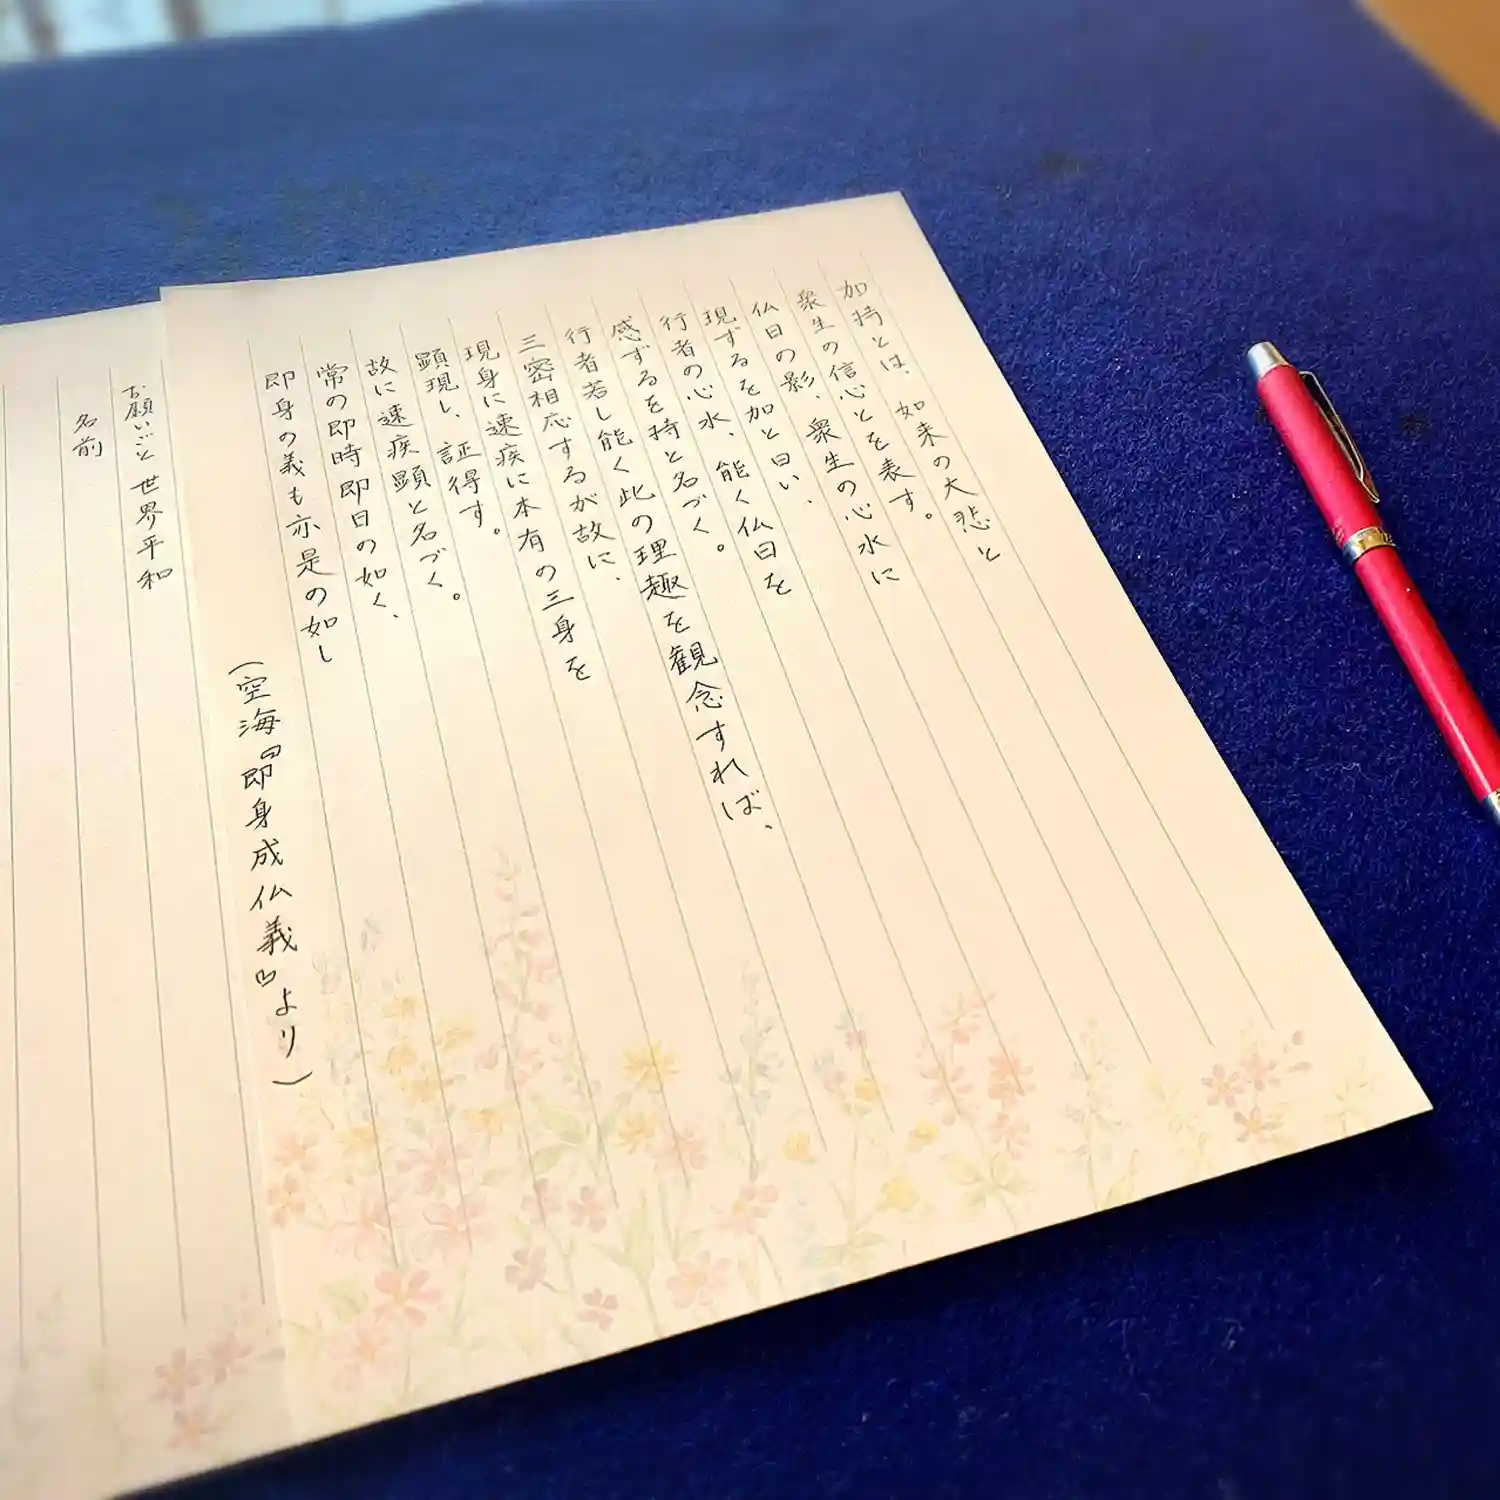 加持とは、如来の大悲と
衆生の信心とを表す。
仏日の影、衆生の心水に
現ずるを加と曰い、
行者の心水、能く仏日を
感ずるを持と名づく。
行者若し能く此の理趣を観念すれば、
三密相応するが故に、
現身に速疾に本有の三身を
顕現し、証得す。
故に速疾顕と名づく。
常の即時即日の如く、
即身の義も亦是の如し
(空海『即身成仏義』より)
お願いごと 世界平和
名前